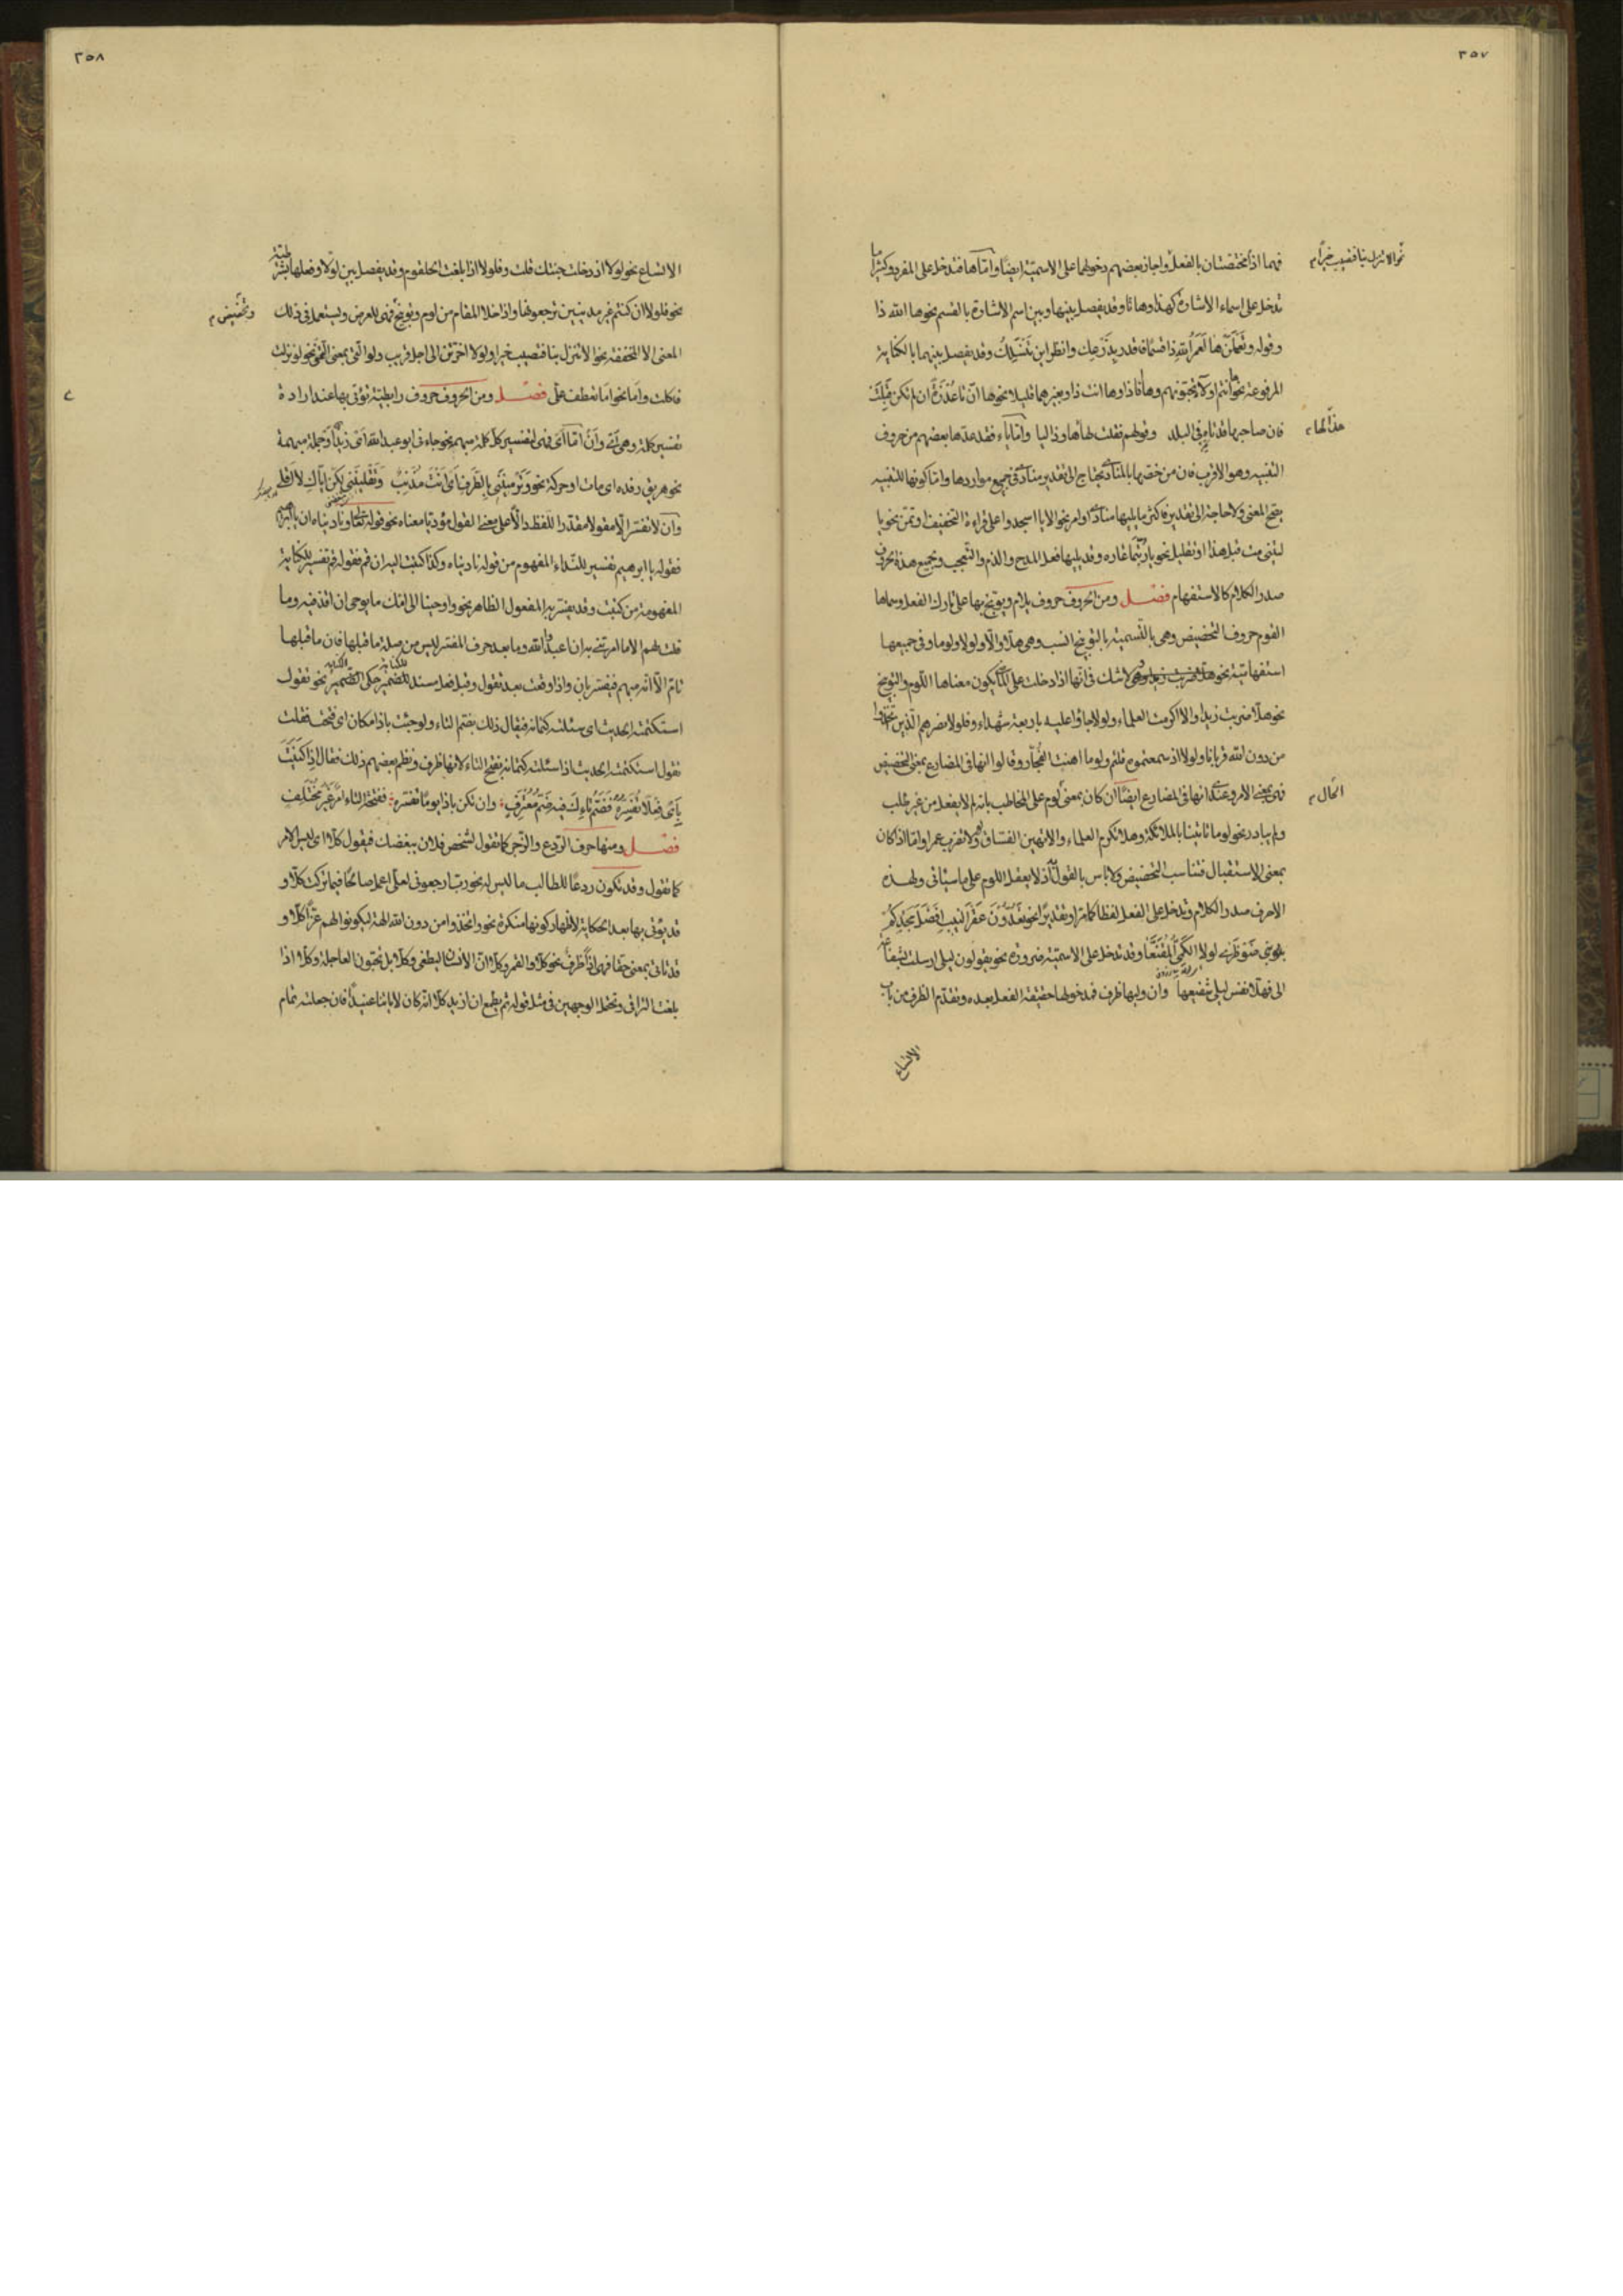 ٣٥٧
فهما اذاً مختصتان بالفعل واجاز بعضهم دخولهما على الاسمية ايضاً واما ها فتدخل على المفرد وكثيرا ما
تدخل على اسماء الاشارة كهذا وهاتا وقد يفصل بينها وبين اسم الاشارة بالقسم نحو ها الله ذا
وقوله وتعلمن ها لعمر الله ذا قسما فاقدر بذرعك وانظر اين تنسلك وقد يفصل بينهما بالكناية
المرفوعة نحو ها انتم اولاء تحبونهم وها انا ذا وها انت ذا وبغيرهما قليلا نحو ها ان تا عذرة ان لم تكن قبلت
فان صاحبها قد تاه فى البلد وقولهم فقلت لها ها وذا ليا واما ياء فقد عدها بعضهم من حروف
التنبيه وهو الاقرب فان من خصها بالمنادى يحتاج الى تقدير منادى فى جميع مواردها واما كونها للتنبيه
يصح المعنى ولا حاجة الى تقدير فاكثر ما يليها منادى او امر نحو الا يا اسجدوا على قراءة التخفيف او تمن نحو يا
ليتنى مت قبل هذا او تقليل نحو يا ربتما غاره وقد يليها فعل المدح والذم والتعجب ولجميع هذه الحروف
صدر الكلام كالاستفهام فصل ومن الحروف حروف يلام ويوبخ بها على تارك الفعل وسماها
القوم حروف التحضيض وهى بالتسمية بالتوبيخ انسب وهى هلا والا ولولا ولوما وفى جميعها
استفهامية نحو هلا ضربت زيدا وهى لا شك فى انها اذا دخلت على الماضى يكون معناها اللوم والتوبيخ
نحو هلا ضربت زيدا والا اكرمت العلماء ولولا جاؤا عليه باربعة شهداء وفلولا نصرهم الذين اتخذوا
من دون الله قربانا ولولا اذ سمعتموه قلتم ولوما اهنت الفجار وقالوا انها فى المضارع بمعنى التحضيض
فهى بمعنى الامر وعندى انها فى المضارع ايضاً ان كان بمعنى لوم على المخاطب بانه لم لا يفعل من غير طلب
ولم يبادر نحو لوما تاتينا بالملائكة وهلا تكرم العلماء والا تهين الفساق ولم لا تضرب عمرا واما اذا كان
بمعنى الاستقبال فتناسب التحضيض ولا باس بالقول اذ لا يعقل اللوم على ما سياتى ولهذه
الاحرف صدر الكلام وتدخل على الفعل لفظا كما مر او تقديرا نحو تعدون عقر النيب افضل مجدكم
بنى ضوطرى لولا الكمى المقنعا وقد تدخل على الاسمية ضرورة نحو يقولون ليلى ارسلت بشفاعة
الى فهلا نفس ليلى شفيعها وان وليها ظرف فمدخولها حقيقة الفعل بعده وتقدم الظرف من باب
الاتساع
نحو الا تنزل بنا فتصيب خيراً م
الحال م
٣٥٨
الاتساع نحو لولا اذ دخلت جنتك قلت وفلولا اذا بلغت الحلقوم وقد يفصل بين لولا وفعلها بشرطية
نحو فلولا ان كنتم غير مدينين ترجعونها واذا خلا المقام من لوم وتوبيخ فهى للعرض ويستعمل فى ذلك
المعنى الا المخففة نحو الا تنزل بنا فتصيب خيرا ولولا اخرتنى الى اجل قريب ولو التى بمعنى التمنى نحو لو نزلت
فاكلت واما نحو اما تعطف على فصل ومن الحروف حروف رابطية تؤتى بها عند ارادة
تفسير كلمة وهى اى وان اما اى فهى لتفسير كل كلمة مبهم نحو جاءنى ابو عبد الله اى زيد او جملة مبهمة
نحو هريق رفده اى مات او حركة نحو وترميننى بالطرف اى انت مذنب وتقليننى لكن اياك لا اقلى
وان لا تفسر الا مفعولا مقدرا للفظ دال على معنى القول مؤديا معناه نحو قوله تعالى وناديناه ان يا ابرهيم
فقوله يا ابرهيم تفسير للنداء المفهوم من قوله ناديناه وكذا كتبت اليه ان قم فقوله قم تفسير للكناية
المفهومة من كتبت وقد يفسر به المفعول الظاهر نحو واوحينا الى امك ما يوحى ان اقذفيه وما
قلت لهم الا ما امرتنى به ان اعبدوا الله وما بعد حرف المفسر ليس من صلة ما قبلها فان ما قبلها
تام الا انه مبهم فيفسر بان واذا وقعت بعد تقول وقبل فعل مسند للضمير حكى الضمير نحو تقول
استكتمته الحديث اى سئلته كتمانه فيقال ذلك بضم التاء ولو جئت باذا مكان اى فتحت فقلت
تقول استكتمته الحديث اذا سئلت كتمانه بفتح التاء لانها ظرف ونظم بعضهم ذلك فقال اذا كنيت
باى فعلا تفسره فضم تاءك فيه ضم معترف وان تكن باذا يوما تفسره ففتحة التاء امر غير مختلف
فصل ومنها حرف الردع والزجر كما تقول لشخص فلان يبغضك فيقول كلا اى ليس الامر
كما تقول وقد تكون ردعا للطالب ما ليس له نحو رب ارجعونى لعلى اعمل صالحا فيما تركت كلا و
قد يؤتى بها بعد الحكاية لاظهار كونها منكرة نحو واتخذوا من دون الله الهة ليكونوا لهم عزا كلا و
قد تاتى بمعنى حقا فهى اذاً ظرف نحو كلا والقمر وكلا ان الانسان ليطغى وكلا بل تحبون العاجلة وكلا اذا
بلغت التراقى وتحمل الوجهين فى مثل قوله ثم يطمع ان ازيد كلا انه كان لاياتنا عنيدا فان جعلته تمام
وتحضيض م